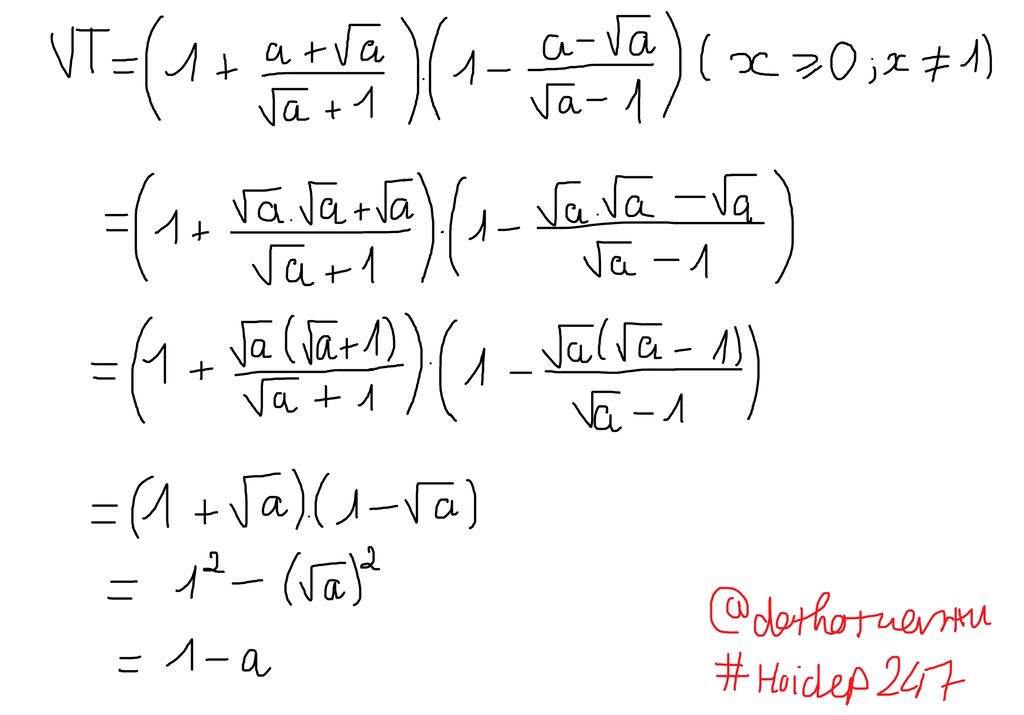 VT = (1 + (a + √a)/(√a + 1)) . (1 - (a - √a)/(√a - 1)) ( x ⩾ 0 ; x ≠ 1)
= (1 + (√a . √a + √a)/(√a + 1)) . (1 - (√a . √a - √a)/(√a - 1))
= (1 + (√a (√a + 1))/(√a + 1)) . (1 - (√a (√a - 1))/(√a - 1))
= (1 + √a) . (1 - √a)
= 1² - (√a)²
= 1 - a
#Hoidep247